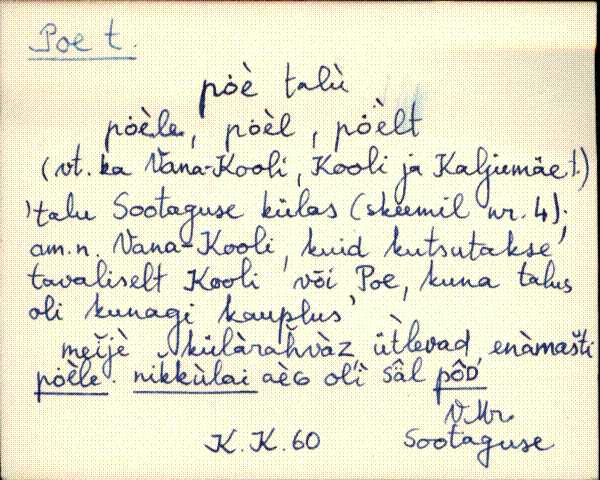 Poe t.
pòè talù
pòèle, pòèl, pòèlt
(vt. ka Vana-Kooli, Kooli ja Kaljumäe t.)
'talu Sootaguse külas (skeemil nr. 4);
am.n. Vana-Kooli, kuid kutsutakse
tavaliselt Kooli või Poe, kuna talus
oli kunagi kauplus'
meìjè külàrahvàz ütlevad enàmašti
pòèle. nikkùlai aèG oli säl pôD
V.Mr.
K.K.60 Sootaguse